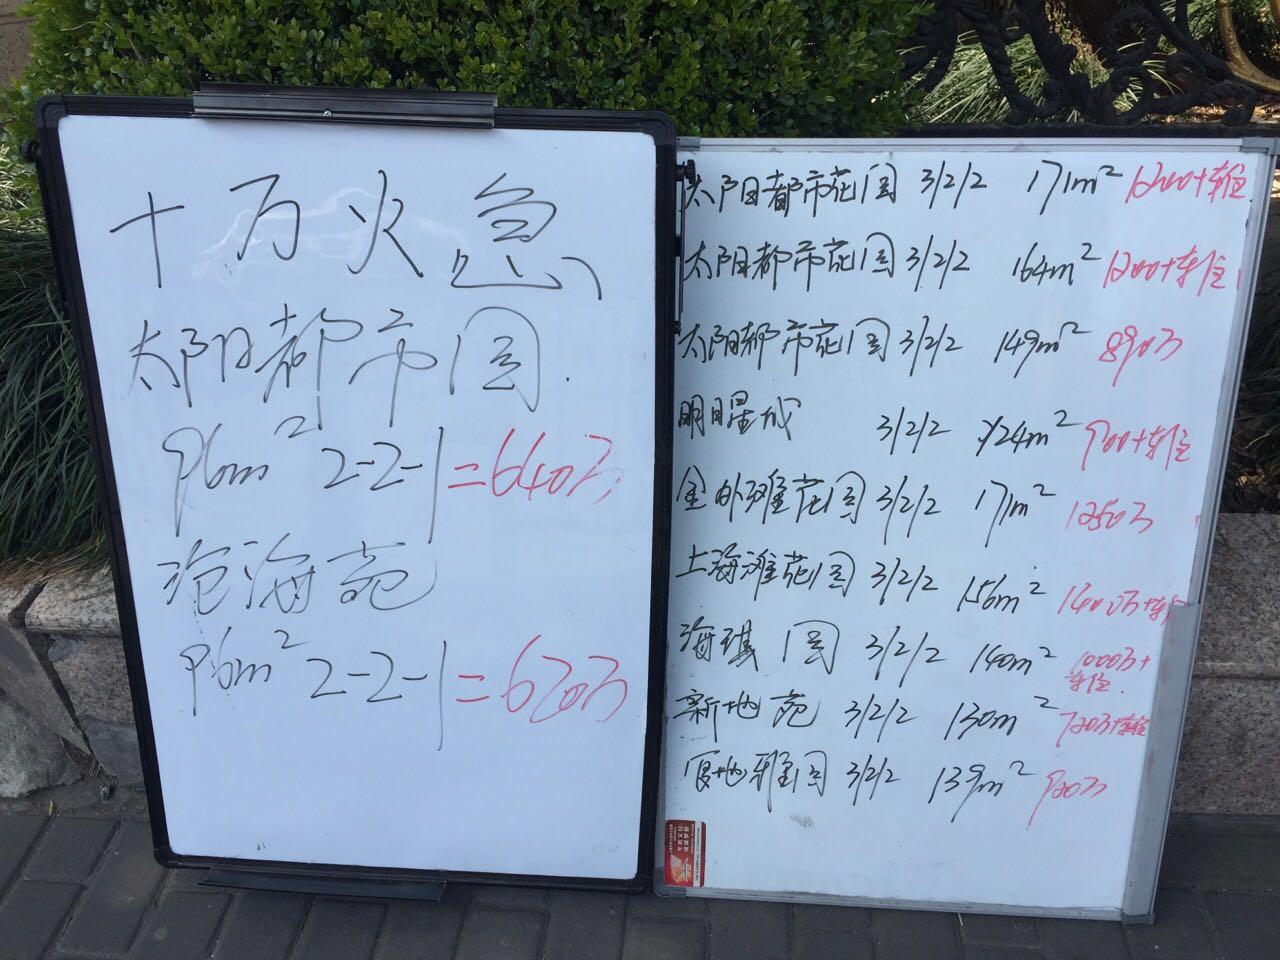 十万火急
太阳都市园.
96m² 2-2-1=640万
沧海苑
96m² 2-2-1=620万
太阳都市花园 3/2/2 171m² 1200+车位
太阳都市花园 3/2/2 164m² 1200+车位
太阳都市花园 3/2/2 149m² 890万
明日星城 3/2/2 124m² 900+车位
金外滩花园 3/2/2 171m² 1250万
上海滩花园 3/2/2 156m² 1400万+车位
海琪园 3/2/2 140m² 1000万+
车位.
新地苑 3/2/2 130m² 720万+车位
厦地雅园 3/2/2 139m² 920万